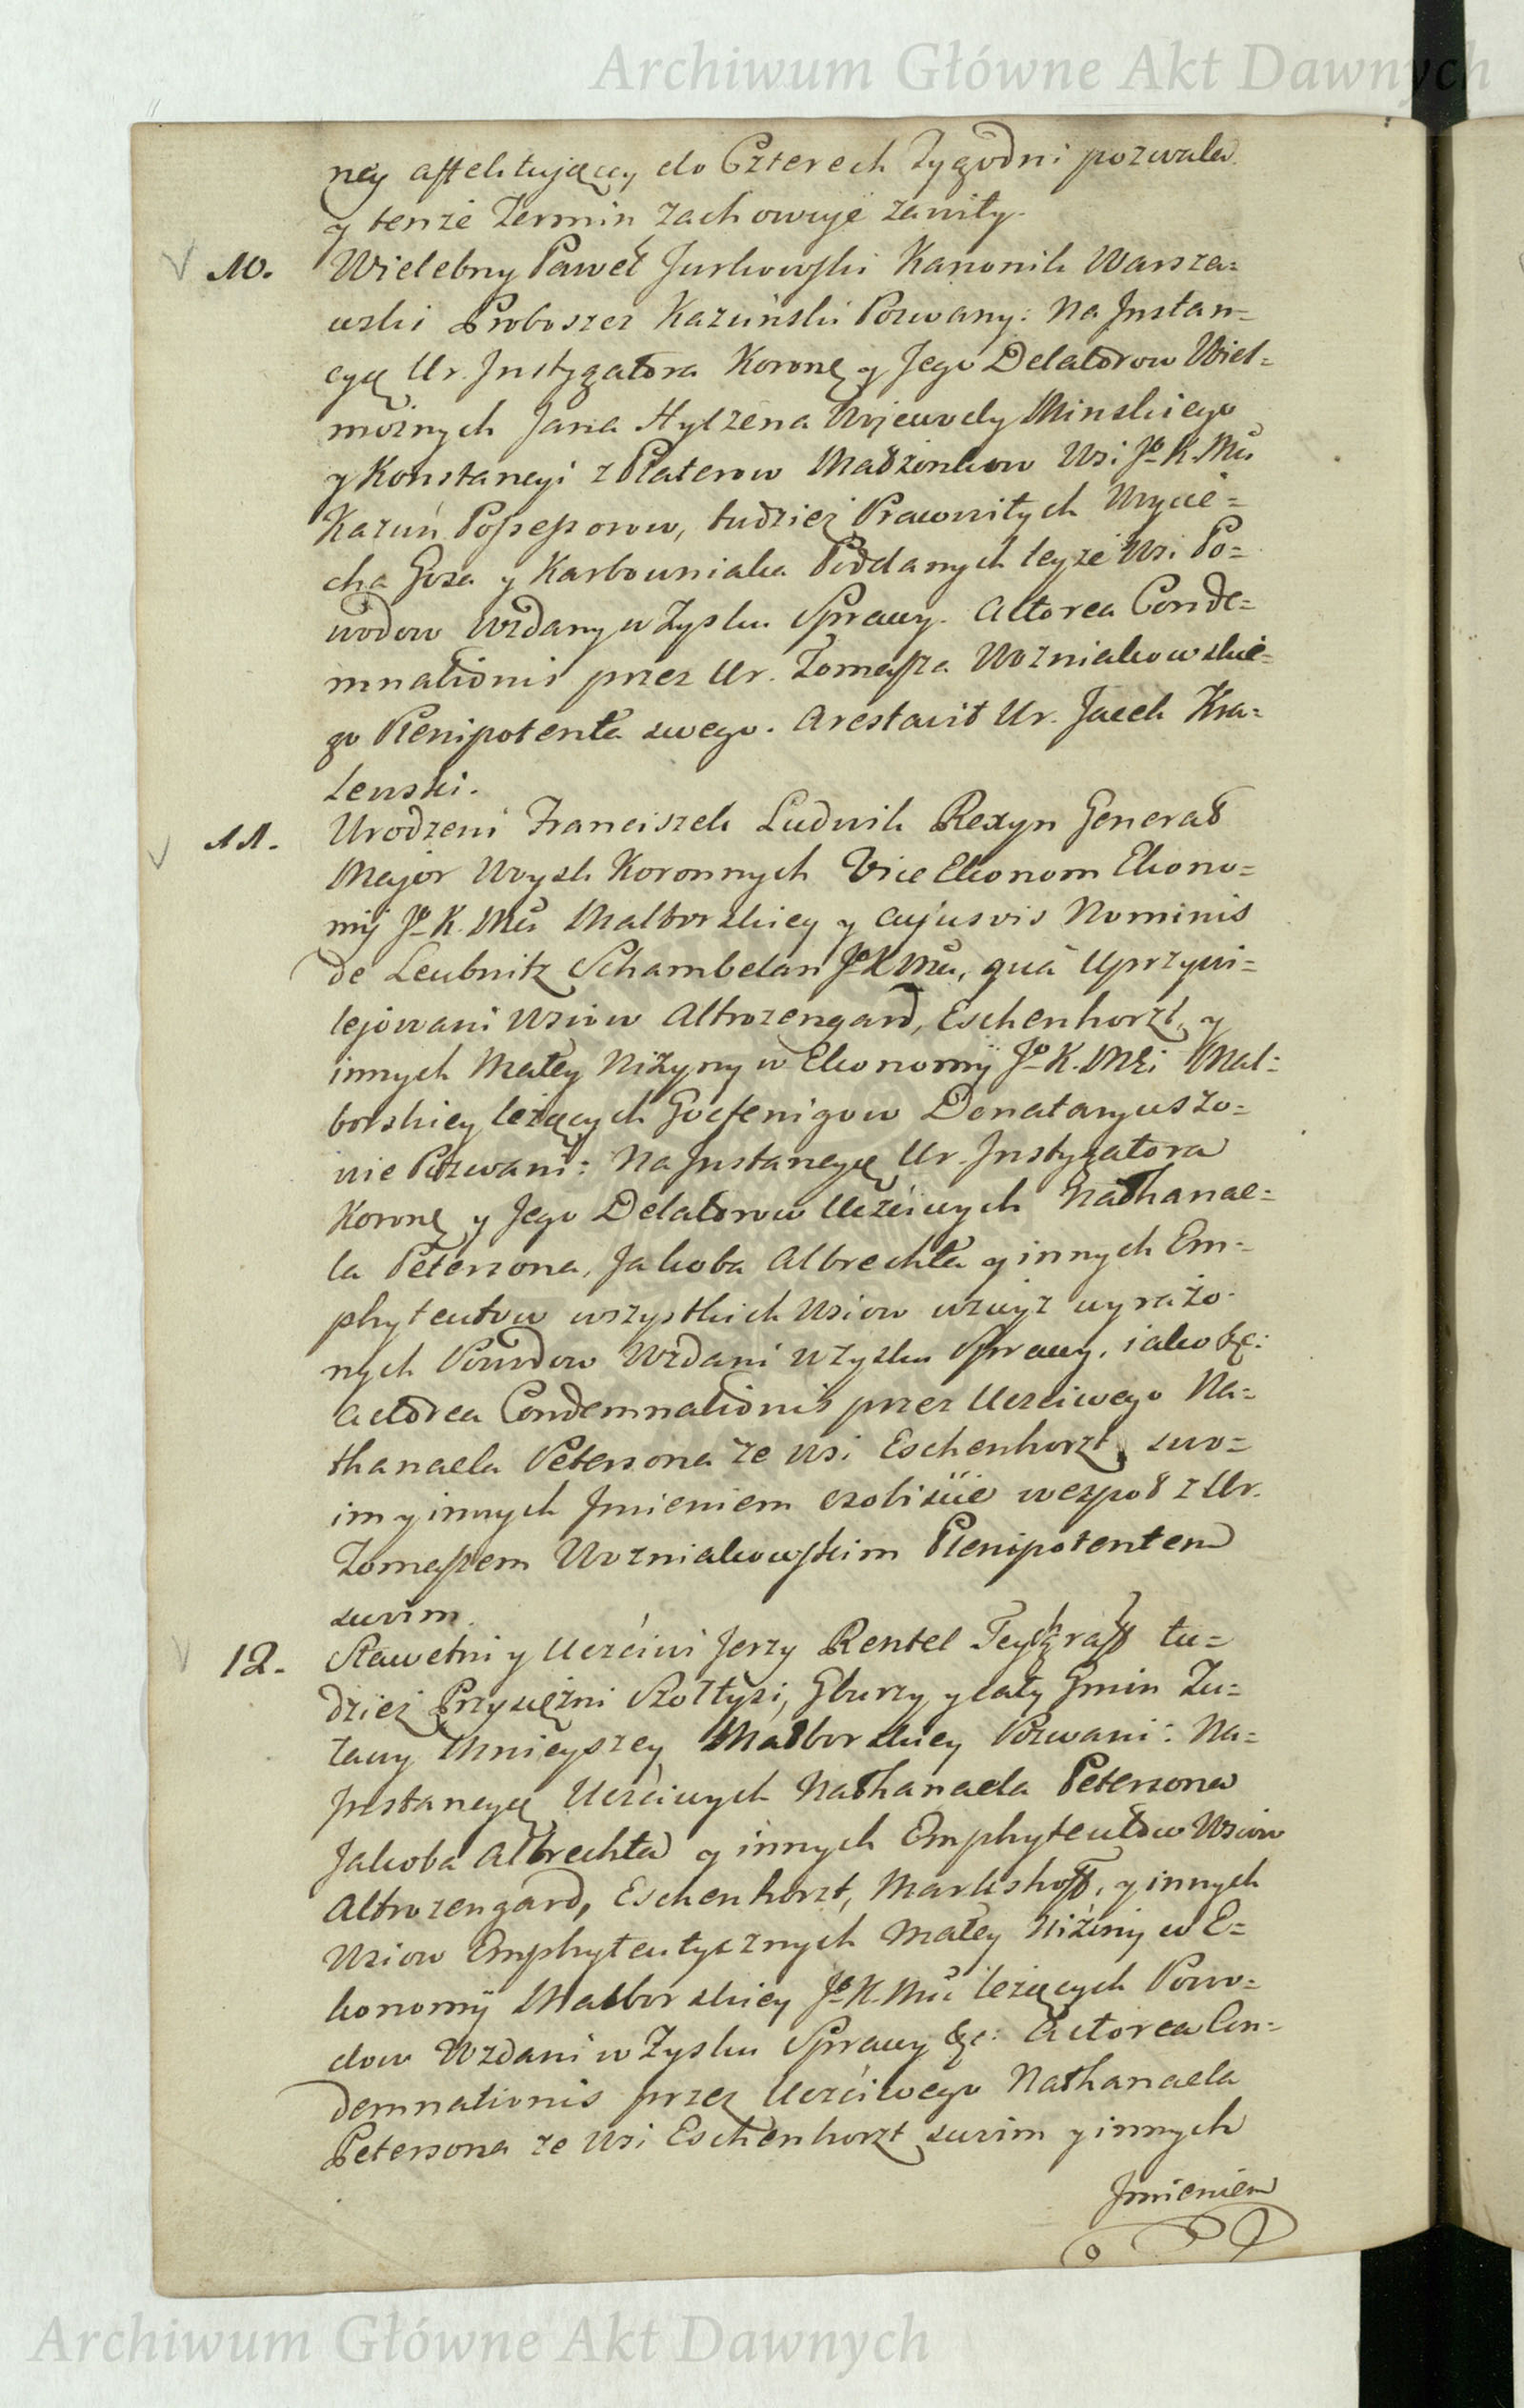 Archiwum Główne Akt Dawnych
ney affektujący do Czterech Tygodni pozwala
y tenże Termin zachowuje zawity.
10. Wielebny Paweł Jurkowski Kanonik Warsza=
wski Proboszcz Kazuński Pozwany: Na Jnstan=
cyę Ur. Jnstygatora Koronę y Jego Delatorow Wiel=
możnych Jana Hylzena Wojewody Minskiego
y Konstancyi z Platerow Małżonkow Wsi Jo K. Mci
Kazuń Possessorow, tudzież Prawowitych Woycie=
cha Goza y Karbowniaka Poddanych teyże Wsi Po=
wodow Wzdany w Zysku Sprawy. Actorea Conde=
mnationis przez Ur. Tomasza Wozniakowskie=
go Plenipotenta swego. Arestavit Ur. Jacek Kra=
lewski.
11. Urodzeni Franciszek Ludwik Rexyn Generał
Major Woysk Koronnych Vice Ekonom Ekono=
mij Jo K. Mci Malborskiey y cujusvis Nominis
de Leubnitz Schambelan Jo K Mci, quà Uprzywi=
lejowani Wsiow Altrozengard, Eschenhorzt, y
innych Małey Niżyny w Ekonomij Jo K. Mci Mal=
borskiey leżących Goefenigow Donataryuszo=
wie Pozwani: Na Jnstancyę Ur. Jnstygatora
Koronę y Jego Delatorow Uczciwych Nathanae=
la Petersona, Jakoba Albrechta y innych Em=
phyteutow wszystkich Wsiow wzwyż wyrażo=
nych Powodow Wzdani w Zysku Sprawy, jako &c:
Actorea Condemnationis przez Uczciwego Na=
thanaela Petersona ze Wsi Eschenhorzt swo=
im y innych Jmieniem ozobiście wespoł z Ur.
Tomaszem Wozniakowskim Plenipotentem
swoim.
12. Sławetni y Uczciwi Jerzy Rentel Teychgraff tu=
dzież Przysiężni Szołtysi, Gburzy y cały Gmin Żu=
ławy Mnieyszey Malborskiey Pozwani: Na=
Jnstancyę Uczciwych Nathanaela Petersona
Jakoba Albrechta y innych Emphyteutow Wsiow
Altrozengard, Eschenhorzt, Markshoff, y innych
Wsiow Emphyteutycznych Małey Niżiny w E=
konomij Malborskiey Jo K. Mci leżących Powo=
dow Wzdani w Zysku Sprawy &c: Actorea Con=
demnationis przez Uczciwego Nathanaela
Petersona ze Wsi Eschenhorzt swoim y innych
Jmieniem
Archiwum Główne Akt Dawnych